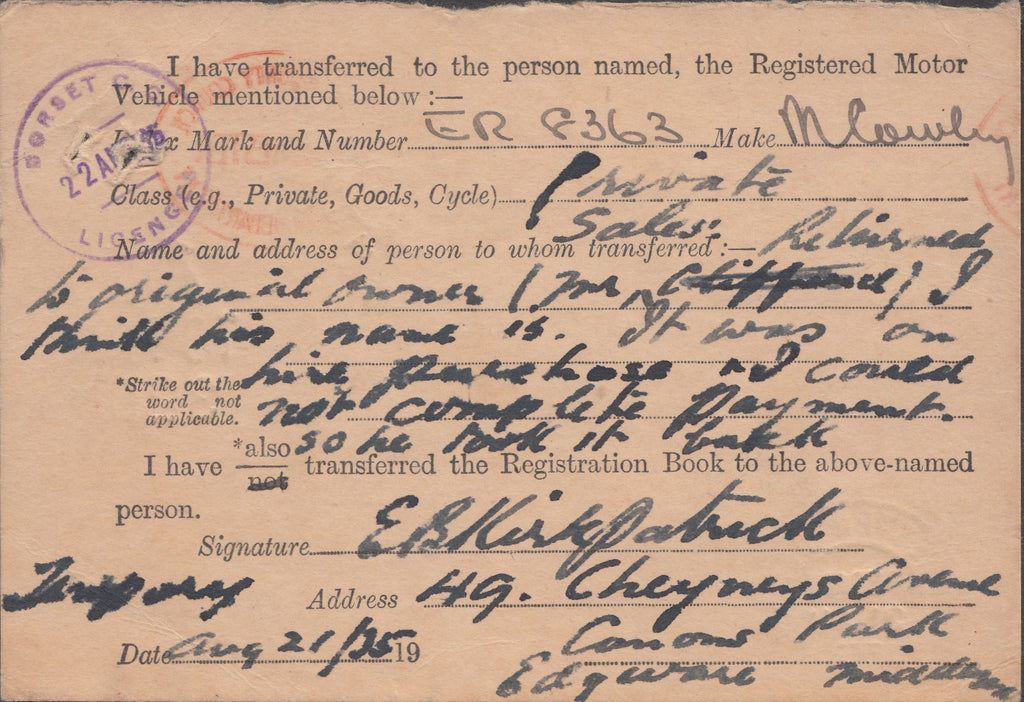 I have transferred to the person named, the Registered Motor
Vehicle mentioned below :—
DORSET C.
22 AP
LICENCE
x Mark and Number ER 8363 Make M Cowley
Class (e.g., Private, Goods, Cycle) Private
Sales:
Name and address of person to whom transferred :— Returned
to original owner (Mr ) I
think his name is. It was on
hire purchase & I could
*Strike out the word not applicable.
not complete payment.
so he took it back
I have *also not transferred the Registration Book to the above-named
person.
Signature E B Kirkpatrick
Temporary Address 49. Cheyneys Avenue
Canons Park
Date Aug 21/35 19
Edgware Middx